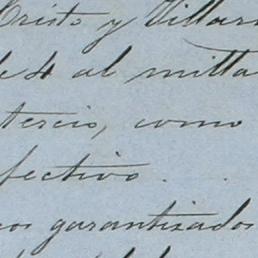 Cristo y Villar
de 4 al milla
tercio, como
fectivo.
os garantizados